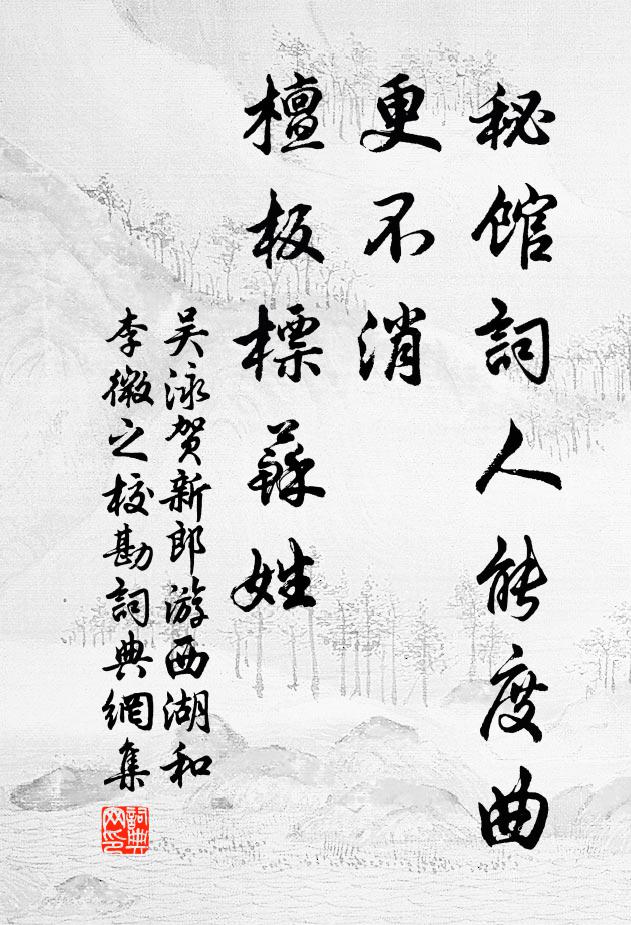 秘馆詞人能度曲
更不消
檀板標蘇姓
吴泳贺新郎游西湖和
李微之校勘詞典網集
詞典
网印